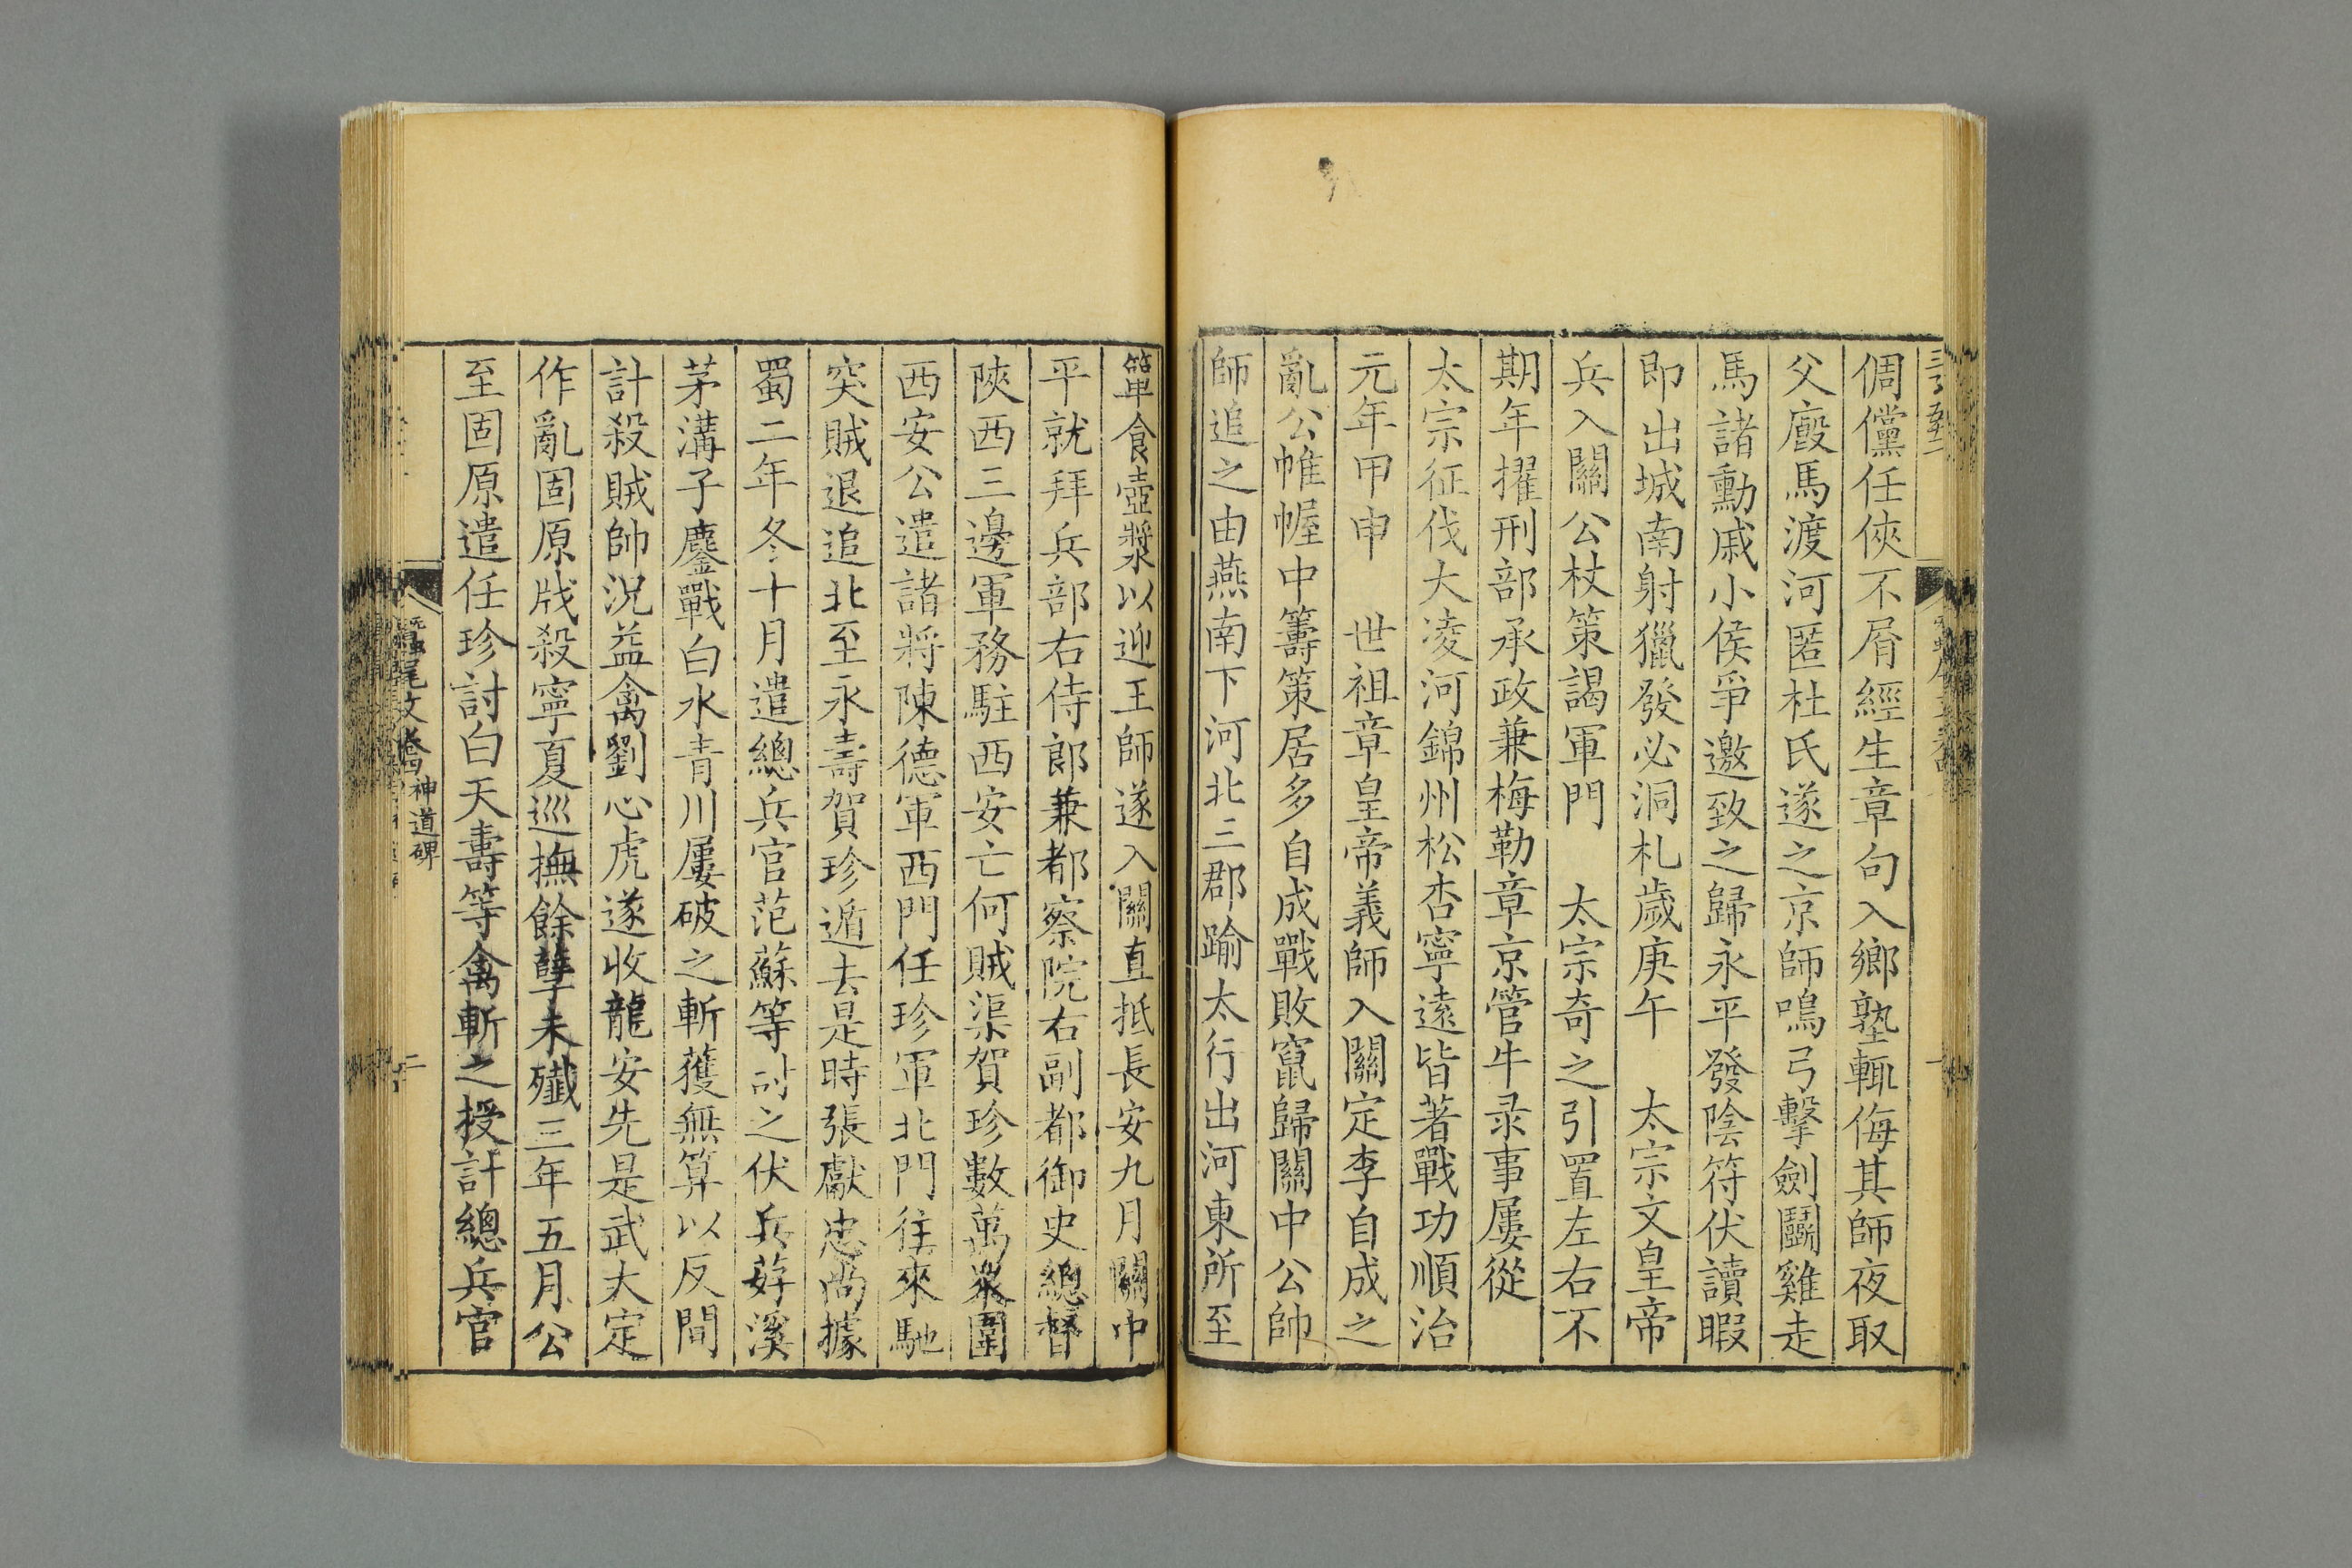 倜儻任俠不屑經生章句入鄉塾輒侮其師夜取
父廄馬渡河匿杜氏遂之京師鳴弓擊劍鬭雞走
馬諸勳戚小侯爭邀致之歸永平發陰符伏讀暇
即出城南射獵發必洞札歲庚午　太宗文皇帝
兵入關公杖策謁軍門　太宗奇之引置左右不
期年擢刑部承政兼梅勒章京管牛录事屢從
太宗征伐大凌河錦州松杏寧遠皆著戰功順治
元年甲申　世祖章皇帝義師入關定李自成之
亂公帷幄中籌策居多自成戰敗竄歸關中公帥
師追之由燕南下河北三郡踰太行出河東所至
簞食壺漿以迎王師遂入關直抵長安九月關中
平就拜兵部右侍郎兼都察院右副都御史總督
陜西三邊軍務駐西安亡何賊渠賀珍數萬衆圍
西安公遣諸將陳德軍西門任珍軍北門往來馳
突賊退追北至永壽賀珍遁去是時張獻忠尚據
蜀二年冬十月遣總兵官范蘇等討之伏兵葫溪
茅溝子鏖戰白水青川屢破之斬獲無算以反間
計殺賊帥況益禽劉心虎遂收龍安先是武大定
作亂固原戕殺寧夏巡撫餘孽未殲三年五月公
至固原遣任珍討白天壽等禽斬之授計總兵官
神道碑
二